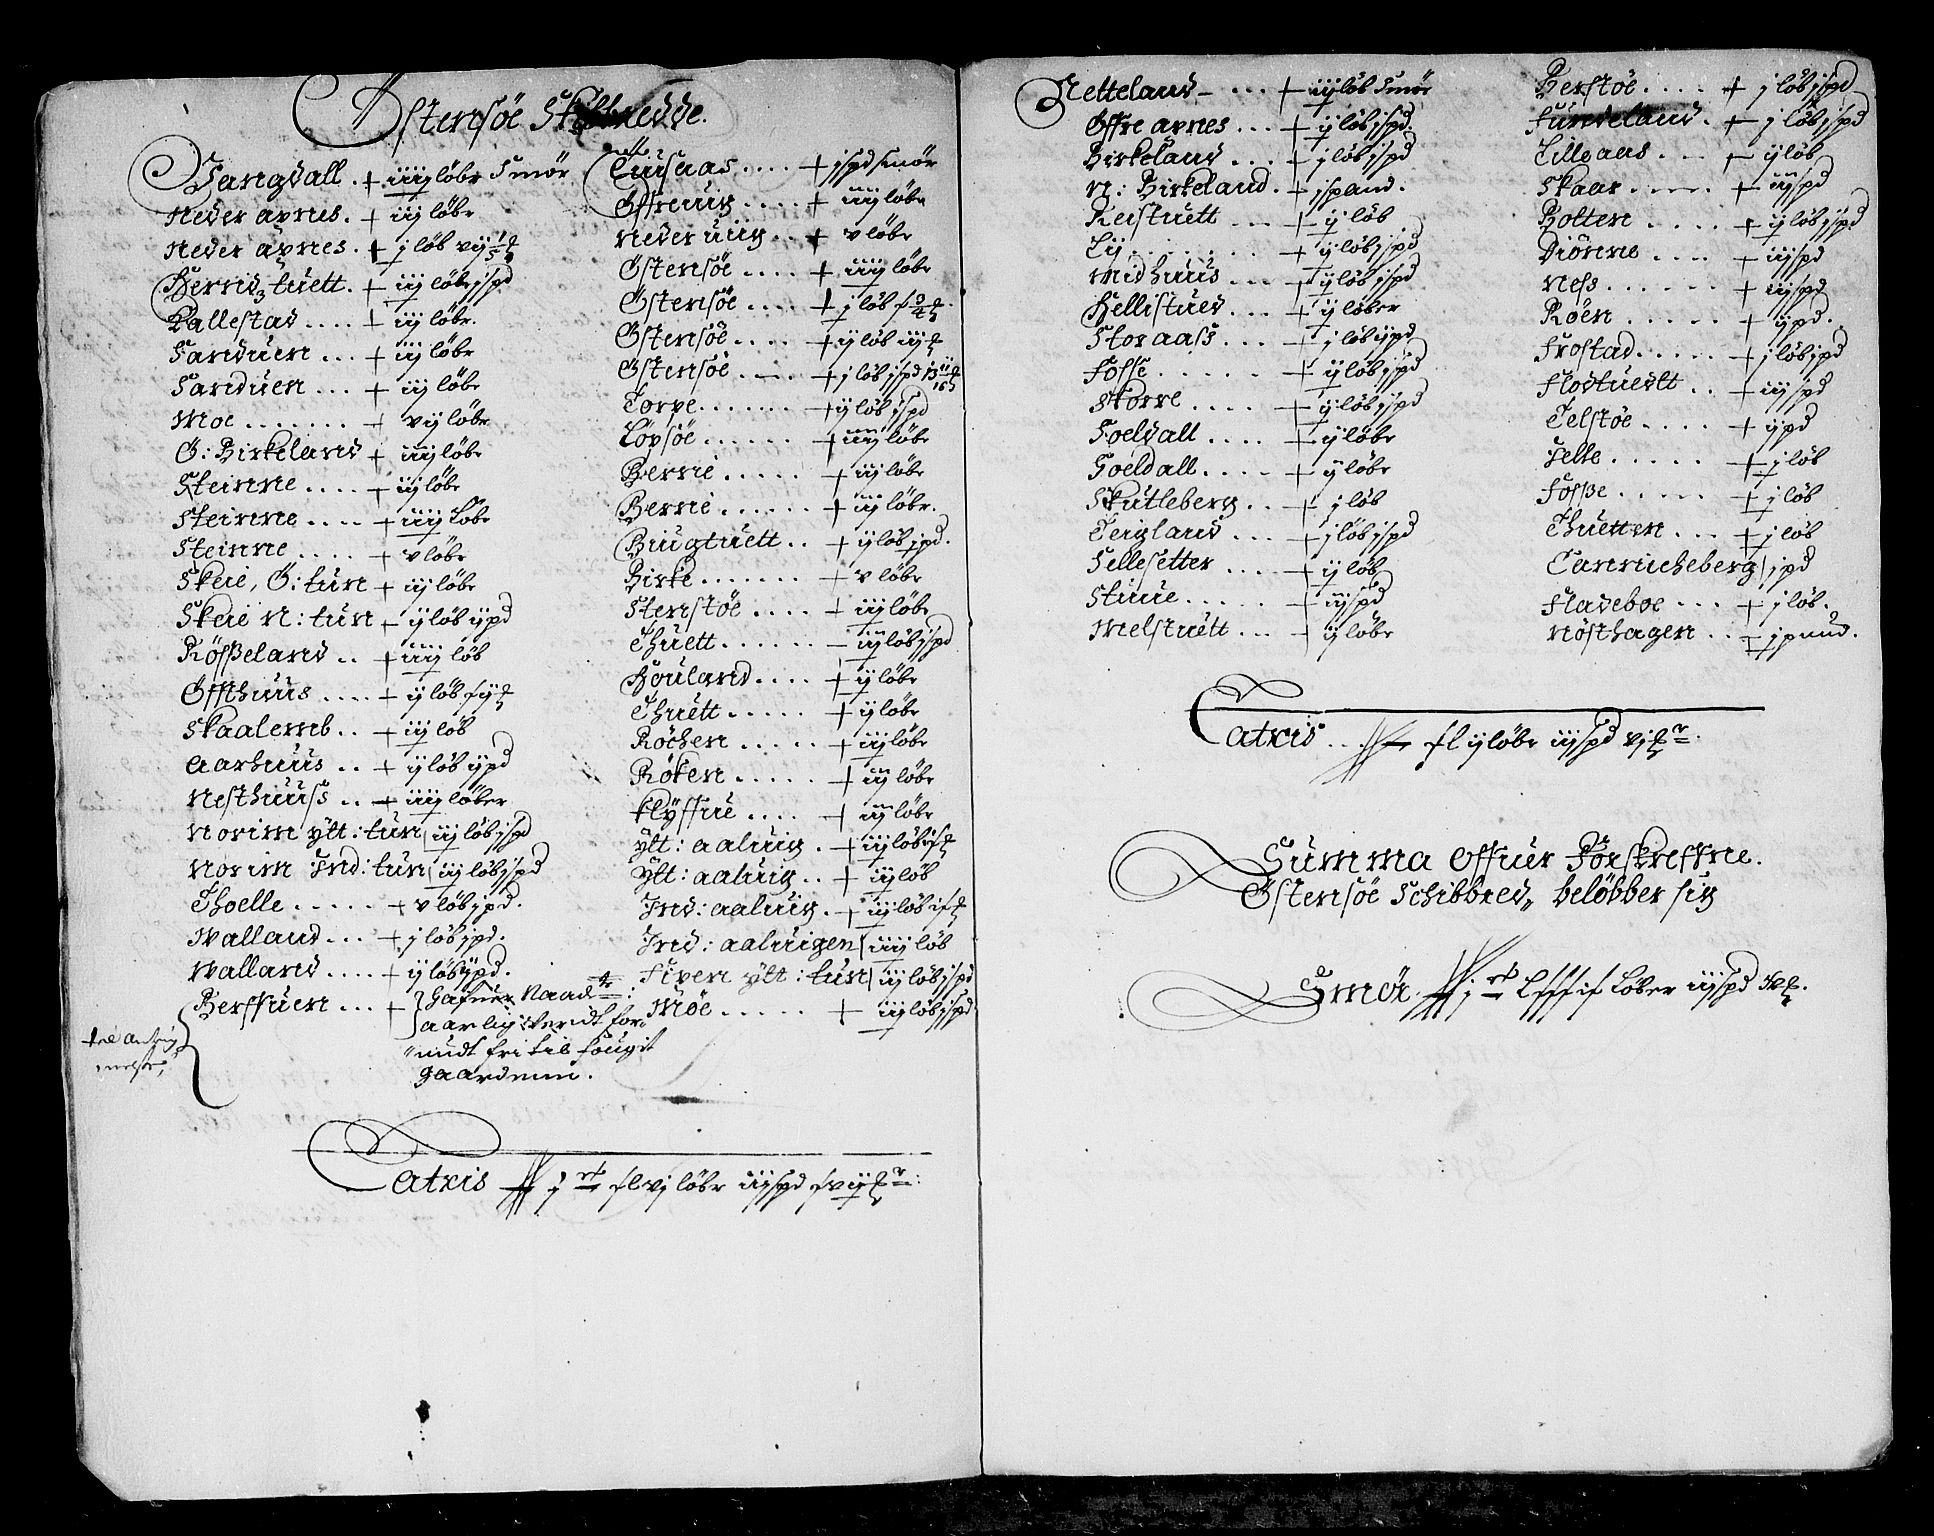 Østensöe Skibredde.
Sangdall . + iiij löbe Smör
Neder axnes . + iij löbe
Neder axnes . + j löb vij
Bervidztuett . + iij löbe j spd
Kallestad .... + iij löbr.
Sanduen ... + iij löbr
Sanduen ... + iij löbr
Moe ....... + vij löbr
Ö: Birkeland + iiij löbr
Steinne .... + iij löbr
Steinne .... + iiij Löbr
Steinne .... + v löbr
Skeie, Ö: tun + iij löbr
Skeie N: tun + ij löb ij pd
Rösseland .. + iiij löb
Öffthuus .... + ij löb
Skaalemb .. + iij löb
Aarhuus .. + ij löb ij pd
Nesthuuss .. + iiij löber
Norim ytt: tun iij löb j spd
Norim Ind: tun iij löb j spd
Tholle ..... + v löb j pd.
Walland ... + j löb j pd.
Walland .... + ij löb ij pd.
Berffuen ... + Gafuer Naad
aarlig: Verudt for
nudt fri til fougit
gaardenn.
Tuisaas .... + j spd smör
Öffreuiig .... + iiij löbr
Neder uiig ... + v löbr
Östensöe .... + iiij löbr
Östensöe .... + j löb
Östensöe .... + ij löb iij
Östensöe .... + j löb j spd
Torpe ....... + ij löb j spd
Löpsöe ...... + iiij löbr
Berrie ..... + iij löbr
Berrie ...... + iij löbr.
Bugtuett .. + ij löb j pd.
Birke ....... + v löbr
Stenstöe .... + iiij löbr
Thuett ...... - iij löb j spd
Houland .... + ij löbr
Thuett ..... + ij löbr
Röchen ..... + iij löbr
Röken ..... + iij löbr
Klyffue .... + iij löbr
ytt: aaluig . + iij löb
ytt: aaluig .. + iij löb
Ind: aaluig . + iij löb
Ind: aaluigen iiij löb
Fixen ytt: tun iij löb j spd
Moe ..... + iij löb j spd
Latris j
löbr iij spd
Netteland - ... + iij löb Smör
Öffre axnes ... + ij löb j spd.
Birkeland ... + j löb j spd
N: Birkeland . + j spand.
Reistuett ... + ij löb
Lij .... + ij löb j spd
Midhuus ... + ij löb j spd
Hellistued ... + ij löber
Storaass ... + j löb ij pd
Fosse ...... + ij löb j spd
Skorre .... + ij löb j spd
Soeldall .... + ij löbr
Soeldall .... + ij löbr
Skutleberg .. + j löb
Teigland ... + j löb j spd
Sellesetter ... + ij löb
Stuue ..... + iij spd
Melstuett ... + ij löbr
Berstöe .... + j löb j spd
Fundeland . + j löb j spd
Lilleaas ... + ij löb
Skaar ..... + iij spd
Botten .... + ij löb j spd
Diönne .... + iij spd
Ness ...... + iij spd
Röen ..... + ij pd.
Frostad ..... + j löb j pd
Flodtuedt .. + iij spd
Telstöe .... + ij pd
Selle ..... + j löb
Fosse ..... + j löb
Thuetten ... + j löb
Canneheberg j pd
Fladeboe ... + j löb.
Nösthagen .. + j pund.
Latris ..
ij löbr iij spd vj
Summa offuer Förskrefne.
Östensöe Schibbred, belöbber sig
Smör
Löber iij spd